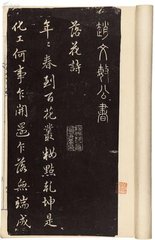 趙文敏公書
落花詩
年年春到百花叢粧點乾坤是
化工何事乍開還乍落無端成